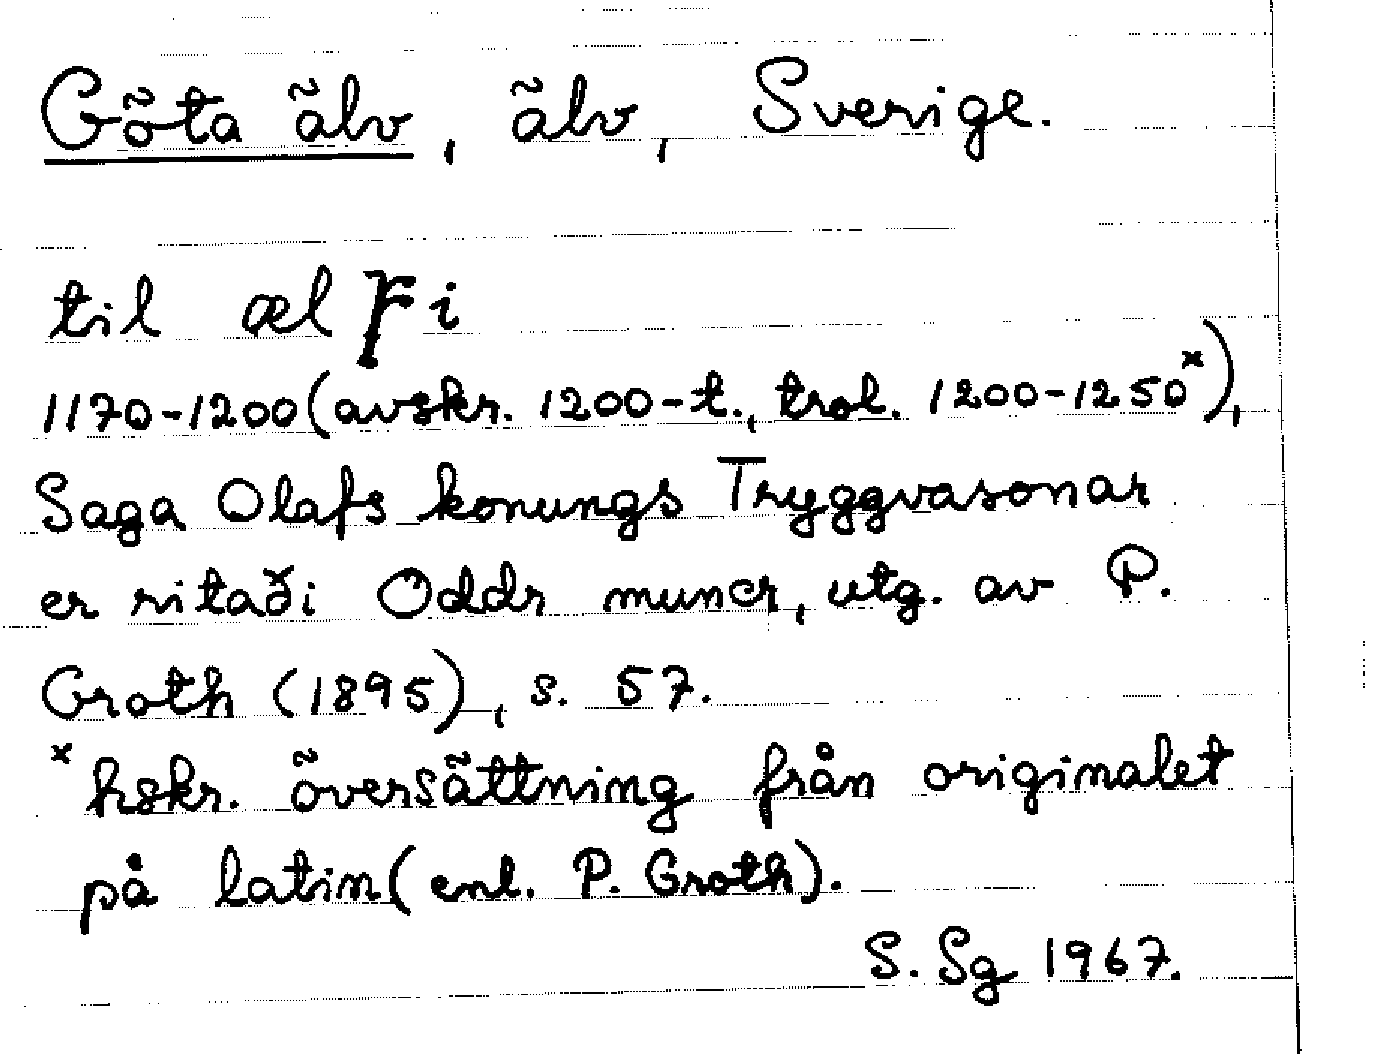 Göta älv, älv, Sverige.
til ælꝼi
1170-1200(avskr. 1200-t., trol. 1200-1250ˣ),
Saga Olafs konungs Tryggvasonar
er ritaði Oddr muncr, utg. av P.
Groth (1895), s. 57.
ˣ hskr. översättning från originalet
på latin(enl. P. Groth).
S. Sg 1967.